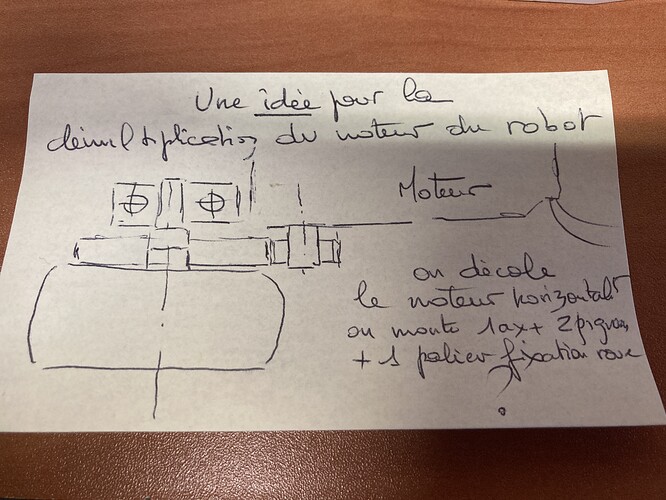 Une idée pour la
démultiplication du moteur du robot
Moteur
on décole
le moteur horizontalt
on monte 1 ax + 2 pignons
+ 1 palier fixation roue
?